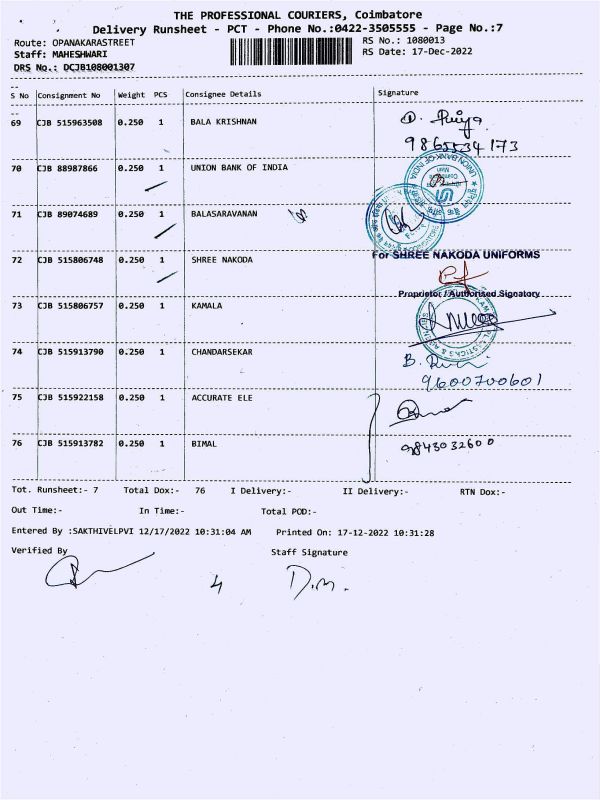 THE PROFESSIONAL COURIERS, Coimbatore
Delivery Runsheet - PCT - Phone No.:0422-3505555 - Page No.:7
Route: OPANAKARASTREET RS No.: 1080013
Staff: MAHESHWARI RS Date: 17-Dec-2022
DRS No.: DCJB108001307
S No Consignment No Weight PCS Consignee Details Signature
69 CJB 515963508 0.250 1 BALA KRISHNAN
9865534173
70 CJB 88987866 0.250 1 UNION BANK OF INDIA
UNION BANK OF INDIA
71 CJB 89074689 0.250 1 BALASARAVANAN
72 CJB 515806748 0.250 1 SHREE NAKODA For SHREE NAKODA UNIFORMS
Proprietor / Authorised Signatory
73 CJB 515806757 0.250 1 KAMALA
74 CJB 515913790 0.250 1 CHANDARSEKAR
9600700601
75 CJB 515922158 0.250 1 ACCURATE ELE
76 CJB 515913782 0.250 1 BIMAL 9843032600
Tot. Runsheet:- 7 Total Dox:- 76 I Delivery:- II Delivery:- RTN Dox:-
Out Time:- In Time:- Total POD:-
Entered By :SAKTHIVELPVI 12/17/2022 10:31:04 AM Printed On: 17-12-2022 10:31:28
Verified By Staff Signature
4 D.M.